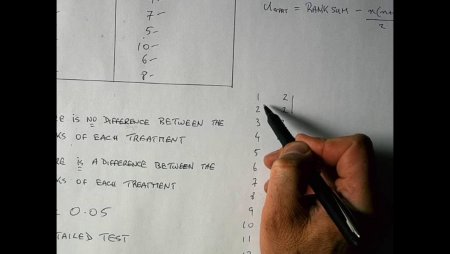 7 -
5 -
10 -
6 -
8 -
U STAT = RANK SUM -
2
RE IS NO DIFFERENCE BETWEEN THE
KS OF EACH TREATMENT
RE IS A DIFFERENCE BETWEEN THE
KS OF EACH TREATMENT
= 0.05
TAILED TEST
1 2
2
3
4
5
6
7
8
9
10
11
12